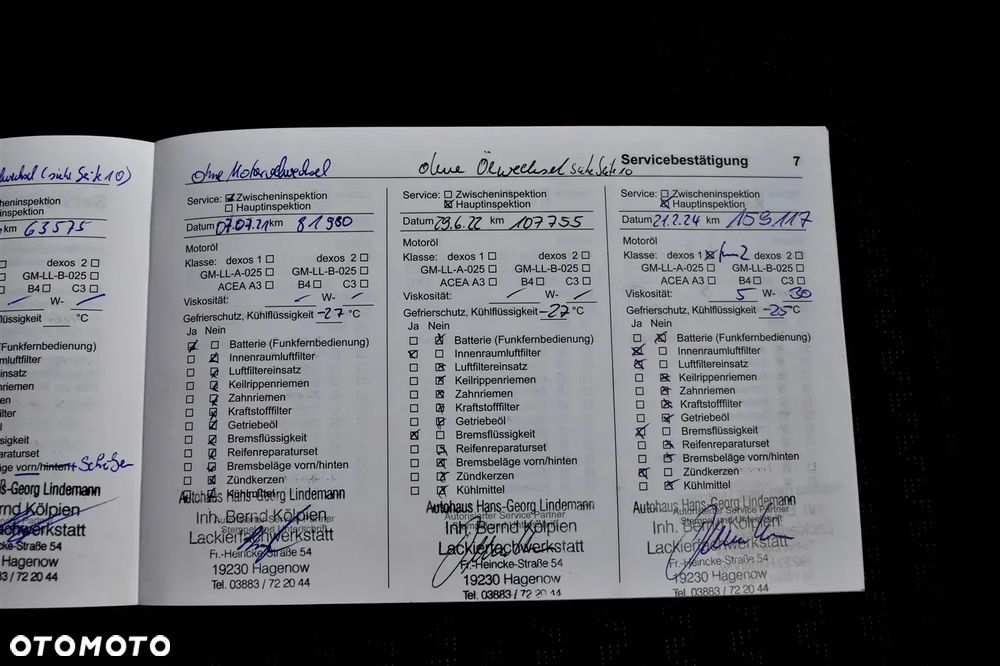 Servicebestätigung 7
(siehe Seite 10)
heninspektion
nspektion
km 63575
2 ☐
-B-025 ☐
B4 ☐ C3 ☐
W-
lüssigkeit ___ °C
(Funkfernbedienung)
mluftfilter
einsatz
riemen
en
ilter
l
sigkeit
araturset
läge vorn/hinten + Scheiben
s-Georg Lindemann
ernd Kölpien
achwerkstatt
ncke-Straße 54
Hagenow
3 / 72 20 44
ohne Motorölwechsel
Service: ☒ Zwischeninspektion
☐ Hauptinspektion
Datum 07.07.21 km 81980
Motoröl
Klasse: dexos 1 ☐ dexos 2 ☐
GM-LL-A-025 ☐ GM-LL-B-025 ☐
ACEA A3 ☐ B4 ☐ C3 ☐
Viskosität: — W- —
Gefrierschutz, Kühlflüssigkeit -27 °C
Ja Nein
☒ ☐ Batterie (Funkfernbedienung)
☐ ☒ Innenraumluftfilter
☐ ☒ Luftfiltereinsatz
☐ ☒ Keilrippenriemen
☐ ☒ Zahnriemen
☐ ☒ Kraftstofffilter
☐ ☒ Getriebeöl
☐ ☒ Bremsflüssigkeit
☐ ☒ Reifenreparaturset
☐ ☒ Bremsbeläge vorn/hinten
☐ ☒ Zündkerzen
☐ ☒ Kühlmittel
Autohaus Hans-Georg Lindemann
Autorisierter Service Partner
Inh. Bernd Kölpien
Stempel und Unterschrift
Lackierfachwerkstatt
Fr.-Heincke-Straße 54
19230 Hagenow
Tel. 03883 / 72 20 44
ohne Ölwechsel siehe Seite 10
Service: ☐ Zwischeninspektion
☒ Hauptinspektion
Datum 29.6.22 km 107755
Motoröl
Klasse: dexos 1 ☐ dexos 2 ☐
GM-LL-A-025 ☐ GM-LL-B-025 ☐
ACEA A3 ☐ B4 ☐ C3 ☐
Viskosität: — W- —
Gefrierschutz, Kühlflüssigkeit -27 °C
Ja Nein
☐ ☒ Batterie (Funkfernbedienung)
☒ ☐ Innenraumluftfilter
☐ ☒ Luftfiltereinsatz
☐ ☒ Keilrippenriemen
☐ ☒ Zahnriemen
☐ ☒ Kraftstofffilter
☐ ☒ Getriebeöl
☒ ☐ Bremsflüssigkeit
☐ ☒ Reifenreparaturset
☐ ☒ Bremsbeläge vorn/hinten
☐ ☒ Zündkerzen
☐ ☒ Kühlmittel
Autohaus Hans-Georg Lindemann
Autorisierter Service Partner
Inh. Bernd Kölpien
Lackierfachwerkstatt
Fr.-Heincke-Straße 54
19230 Hagenow
Tel. 03883 / 72 20 44
Service: ☐ Zwischeninspektion
☒ Hauptinspektion
Datum 21.2.24 km 159117
Motoröl
Klasse: dexos 1 ☒ dexos 2 ☐
GM-LL-A-025 ☐ GM-LL-B-025 ☐
ACEA A3 ☐ B4 ☐ C3 ☐
Viskosität: 5 W- 30
Gefrierschutz, Kühlflüssigkeit -25 °C
Ja Nein
☐ ☒ Batterie (Funkfernbedienung)
☒ ☐ Innenraumluftfilter
☒ ☐ Luftfiltereinsatz
☐ ☒ Keilrippenriemen
☐ ☒ Zahnriemen
☐ ☒ Kraftstofffilter
☐ ☒ Getriebeöl
☒ ☐ Bremsflüssigkeit
☐ ☒ Reifenreparaturset
☐ ☒ Bremsbeläge vorn/hinten
☒ ☐ Zündkerzen
☐ ☒ Kühlmittel
Autohaus Hans-Georg Lindemann
Autorisierter Service Partner
Inh. Bernd Kölpien
Stempel und Unterschrift
Lackierfachwerkstatt
Fr.-Heincke-Straße 54
19230 Hagenow
Tel. 03883 / 72 20 44
OTOMOTO